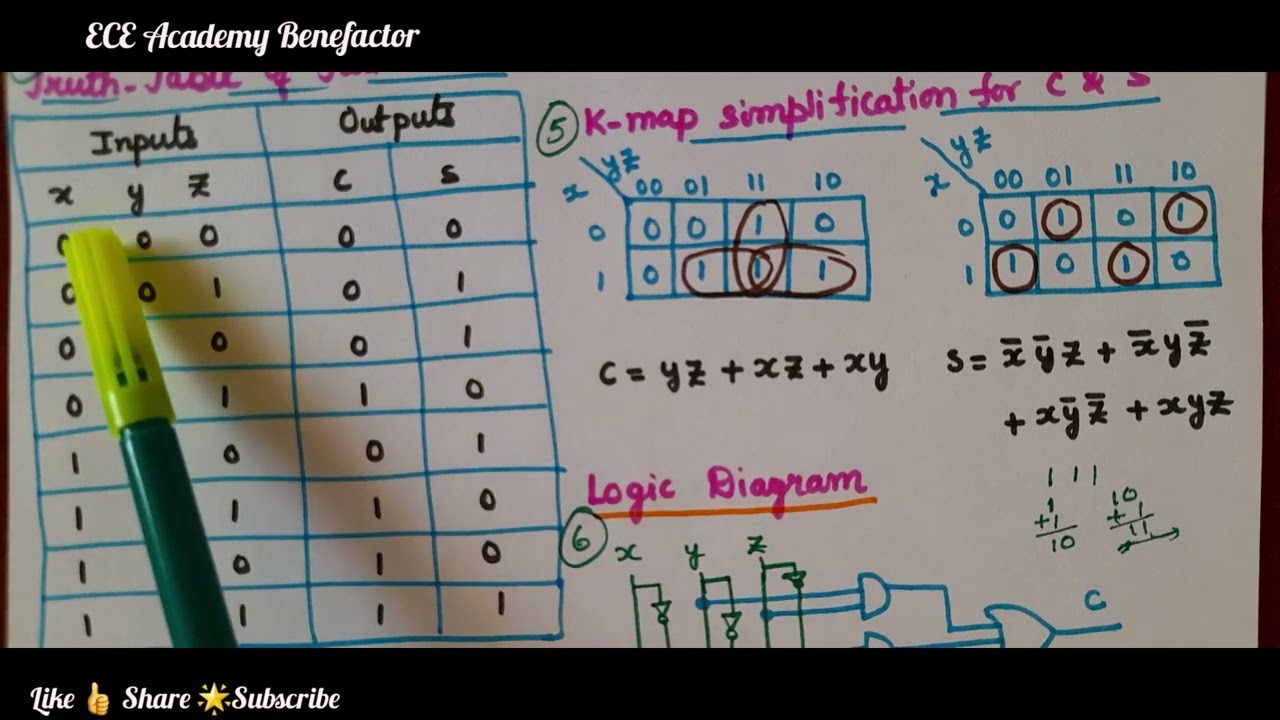 ECE Academy Benefactor
Truth-Table of
Inputs Outputs
x y z C S
0 0 0 0 0
0 0 1 0 1
0 0 0 1
0 1 1 0
1 0 0 1
1 1 1 0
1 0 1 0
1 1 1 1
5 K-map simplification for C & S
yz
x 00 01 11 10
0 0 0 1 0
1 0 1 1 1
yz
x 00 01 11 10
0 0 1 0 1
1 1 0 1 0
C = yz + xz + xy
S = x̄ ȳ z + x̄ y z̄
+ x ȳ z̄ + x y z
1 1 1
1
+1
10
10
+ 1
11
Logic Diagram
6 x y z
C
Like 👍 Share 🌟Subscribe